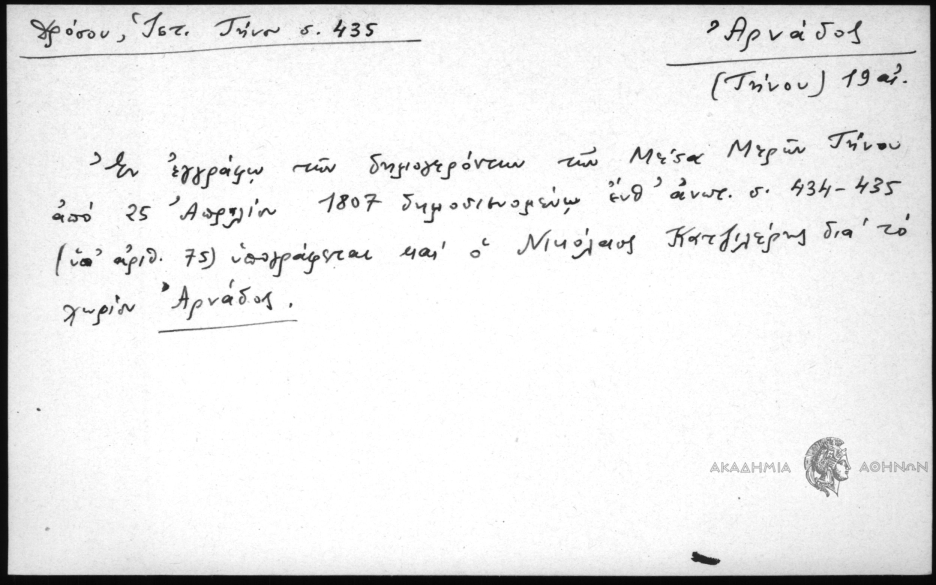 Δρόσου, Ἱστ. Τήνου σ. 435
Ἀρνάδος
(Τήνου) 19 αἰ.
Ἐν ἐγγράφῳ τῶν δημογερόντων τῶν Μέσα Μερῶν Τήνου
ἀπό 25 Ἀπριλίου 1807 δημοσιευομένῳ ἔνθ' ἀνωτ. σ. 434-435
(ὑπ' ἀριθ. 75) ὑπογράφεται καί ὁ Νικόλαος Κατζιλέρης διά τό
χωρίον Ἀρνάδος.
ΑΚΑΔΗΜΙΑ ΑΘΗΝΩΝ